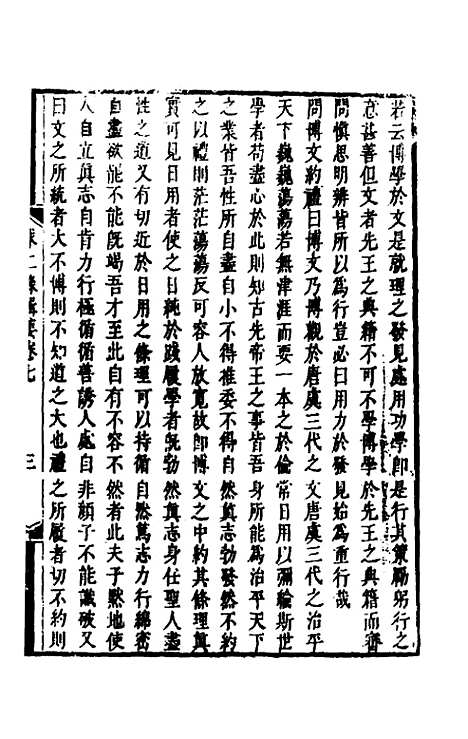 若云博學於文是就理之發見處用功學即是行其策勵躬行之
意甚善但文者先王之典籍不可不學博學於先王之典籍而審
問慎思明辨皆所以為行豈必曰用力於發見始為重行哉
問博文約禮曰博文乃博觀於唐虞三代之文唐虞三代之治平
天下巍巍蕩蕩若無津涯而要一本之於倫常日用以彌綸斯世
學者苟盡心於此則知古先帝王之事皆吾身所能為治平天下
之業皆吾性所自盡自小不得推委不得自然真志勃發然不約
之以禮則茫茫蕩蕩反可容人放寬故即博文之中約其條理真
實可見日用者使之日純於踐履學者既勃然真志身任聖人盡
性之道又有切近於日用之條理可以持循自然篤志力行綿密
自盡欲罷不能既竭吾才至此自有不容不然者此夫子黙地使
人自立真志自肯力行極循循善誘人處自非顏子不能識破又
曰文之所統者大不博則不知道之大也禮之所履者切不約則
求仁錄輯要卷七
三